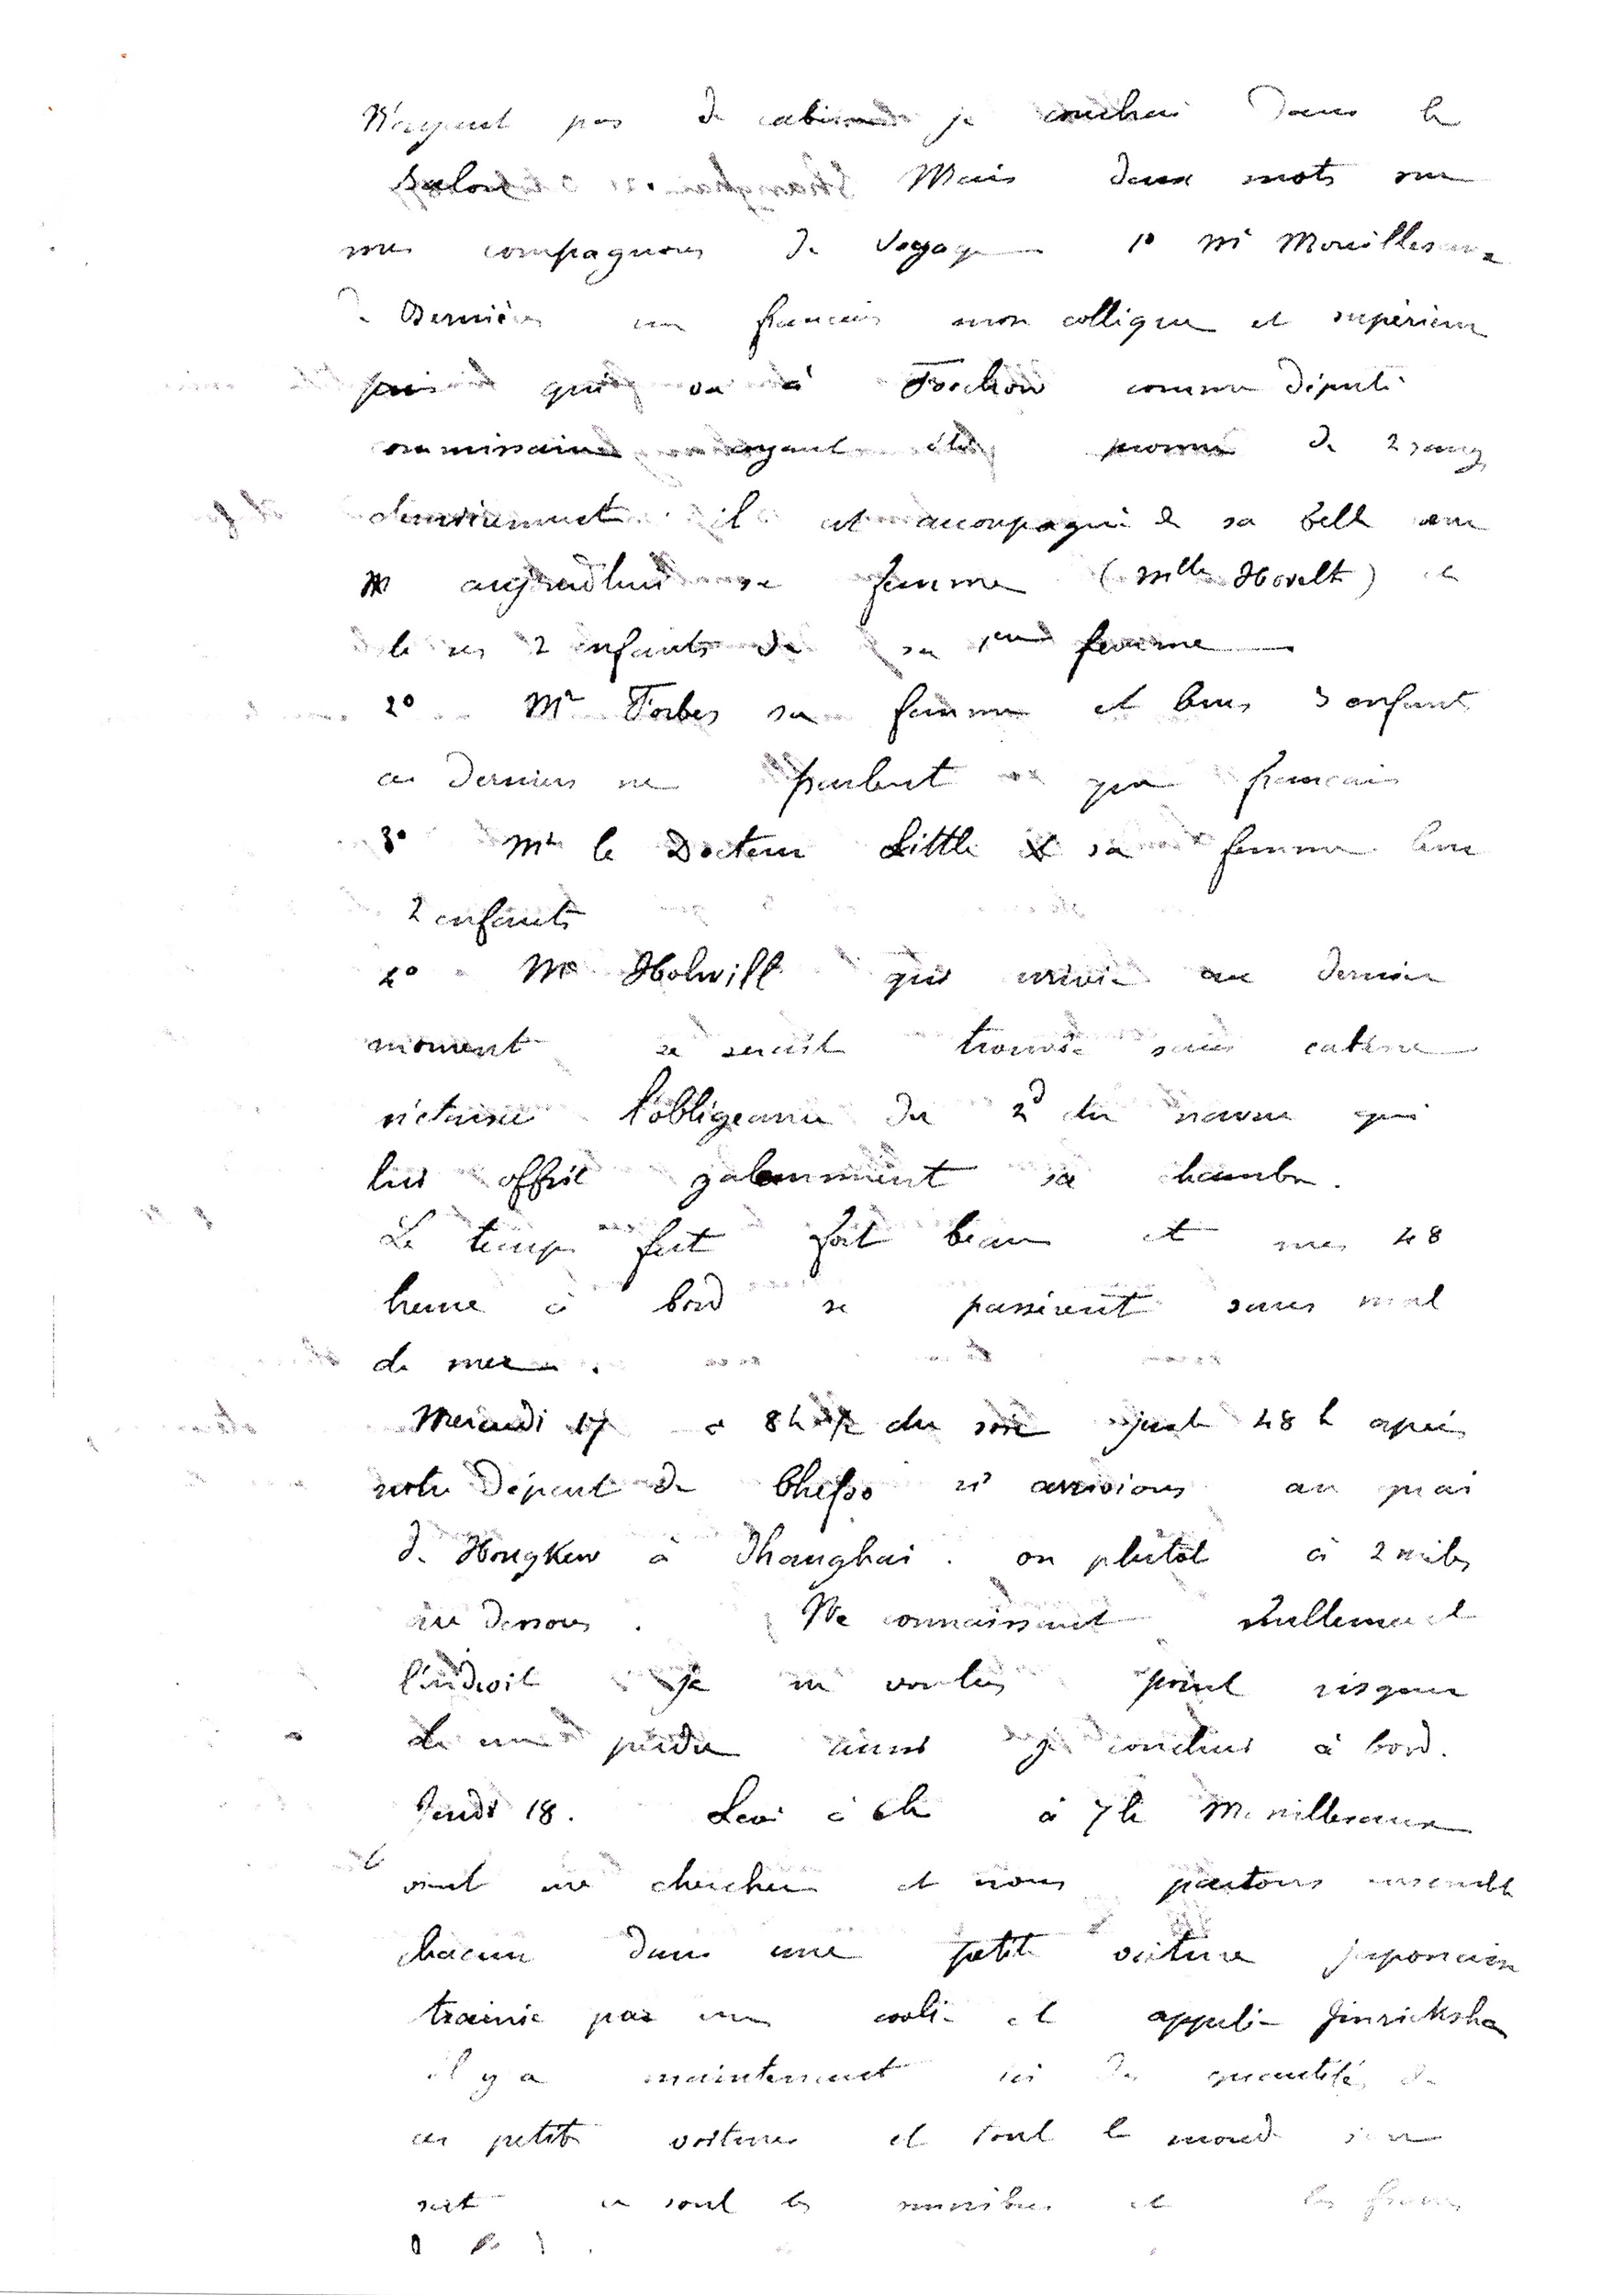 N'ayant pas de cabine je couchai dans le
salon Mais deux mots sur
mes compagnons de voyage 1º Mr Mouillesaux
de Bernières un francais mon collègue et supérieur
puis qui va à Foochow comme député
commissaire ayant été promu de 2 rangs
dernièrement il est accompagné de sa belle sœur
aujourdhui sa femme (Mlle Hovelt) et
de ses 2 enfants de sa femme
2º Mr Forbes sa femme et leurs 3 enfants
ces derniers ne parlent que francais
3º Mr le Docteur Little sa femme leurs
2 enfants
4º Mr Holwill qui arrivé au dernier
moment se serait trouvé sans cabine
n'etaire l'obligeance du 2d du navire qui
lui offrit galamment sa chambre.
Le temps fut fort beau et mes 48
heures à bord se passèrent sans mal
de mer.
Mercredi 17 à 8h 1/2 du soir juste 48 h après
notre départ de Chefoo ns arrivions au quai
de Hongkew à Shanghai. ou plutôt à 2 miles
au dessous. Ne connaissant nullement
l'endroit je ne voulus point risquer
de me perdre aussi je couchai à bord.
Jeudi 18. Levé à 6h à 7h Mouillesaux
vint me chercher et nous partons ensemble
chacun dans une petite voiture japonaise
trainée par un coolie et appelée Jinricksha
il y a maintenant ici des quantités de
ces petites voitures et tout le monde s'en
sert ce sont les omnibus et les fiacres